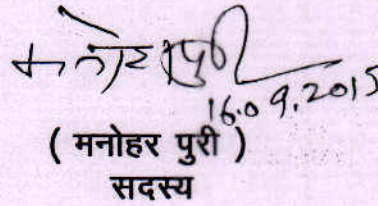 मनोहर पुरी
16.09.2015
( मनोहर पुरी )
सदस्य